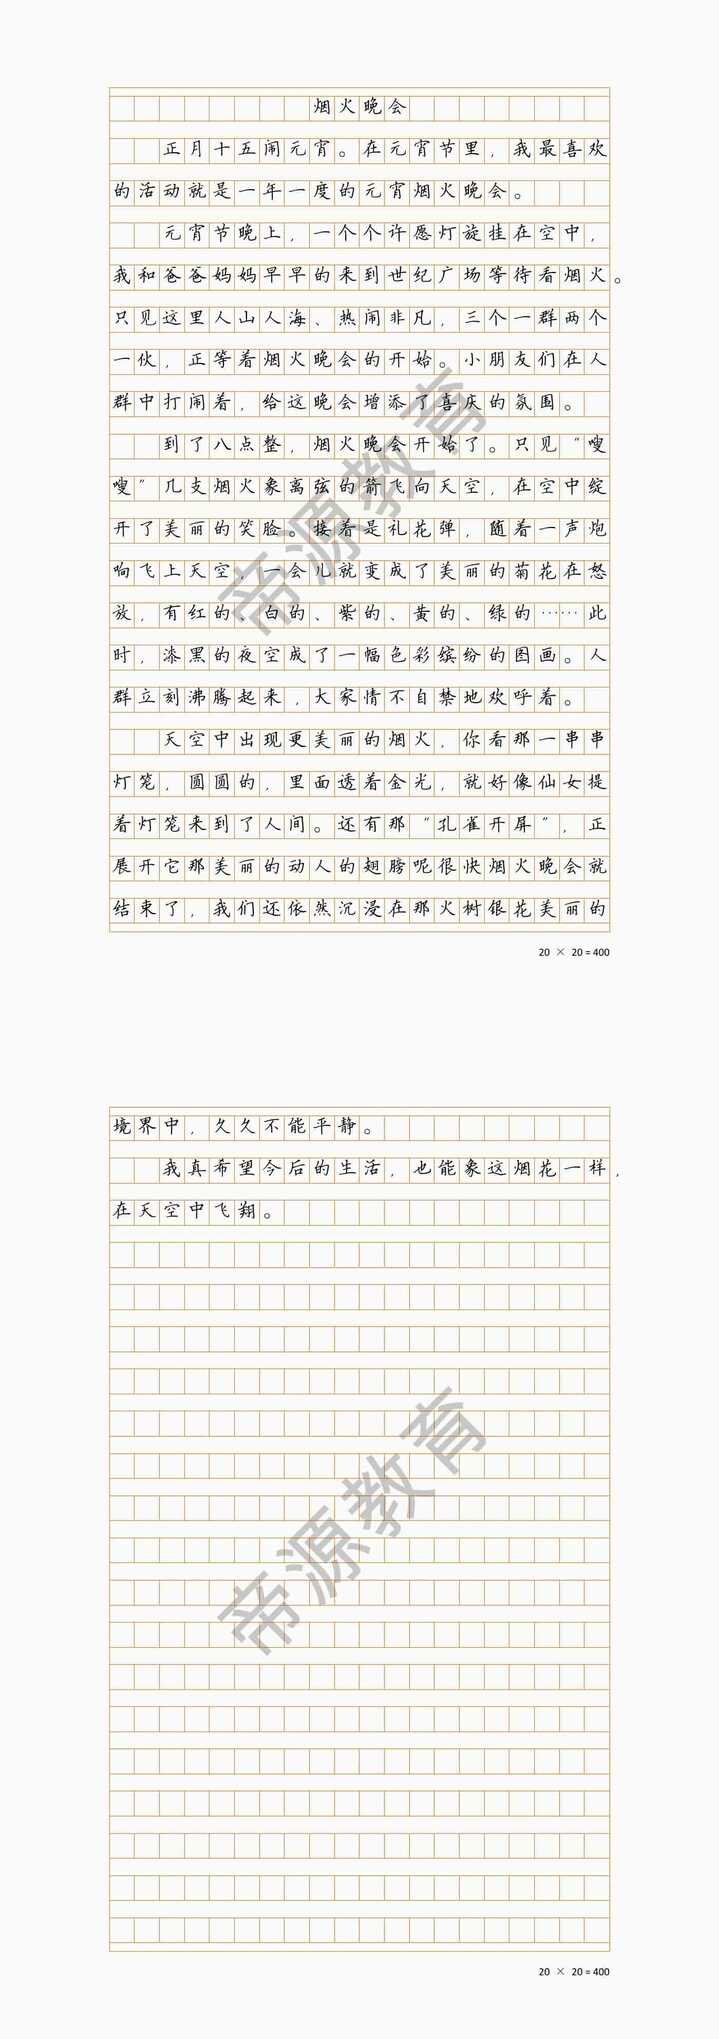 烟火晚会
正月十五闹元宵。在元宵节里，我最喜欢
的活动就是一年一度的元宵烟火晚会。
元宵节晚上，一个个许愿灯旋挂在空中，
我和爸爸妈妈早早的来到世纪广场等待看烟火。
只见这里人山人海、热闹非凡，三个一群两个
一伙，正等着烟火晚会的开始。小朋友们在人
群中打闹着，给这晚会增添了喜庆的氛围。
到了八点整，烟火晚会开始了。只见“嗖
嗖”几支烟火象离弦的箭飞向天空，在空中绽
开了美丽的笑脸。接着是礼花弹，随着一声炮
响飞上天空，一会儿就变成了美丽的菊花在怒
放，有红的、白的、紫的、黄的、绿的……此
时，漆黑的夜空成了一幅色彩缤纷的图画。人
群立刻沸腾起来，大家情不自禁地欢呼着。
天空中出现更美丽的烟火，你看那一串串
灯笼，圆圆的，里面透着金光，就好像仙女提
着灯笼来到了人间。还有那“孔雀开屏”，正
展开它那美丽的动人的翅膀呢很快烟火晚会就
结束了，我们还依然沉浸在那火树银花美丽的
20 × 20 = 400
境界中，久久不能平静。
我真希望今后的生活，也能象这烟花一样，
在天空中飞翔。
20 × 20 = 400
帝源教育
帝源教育